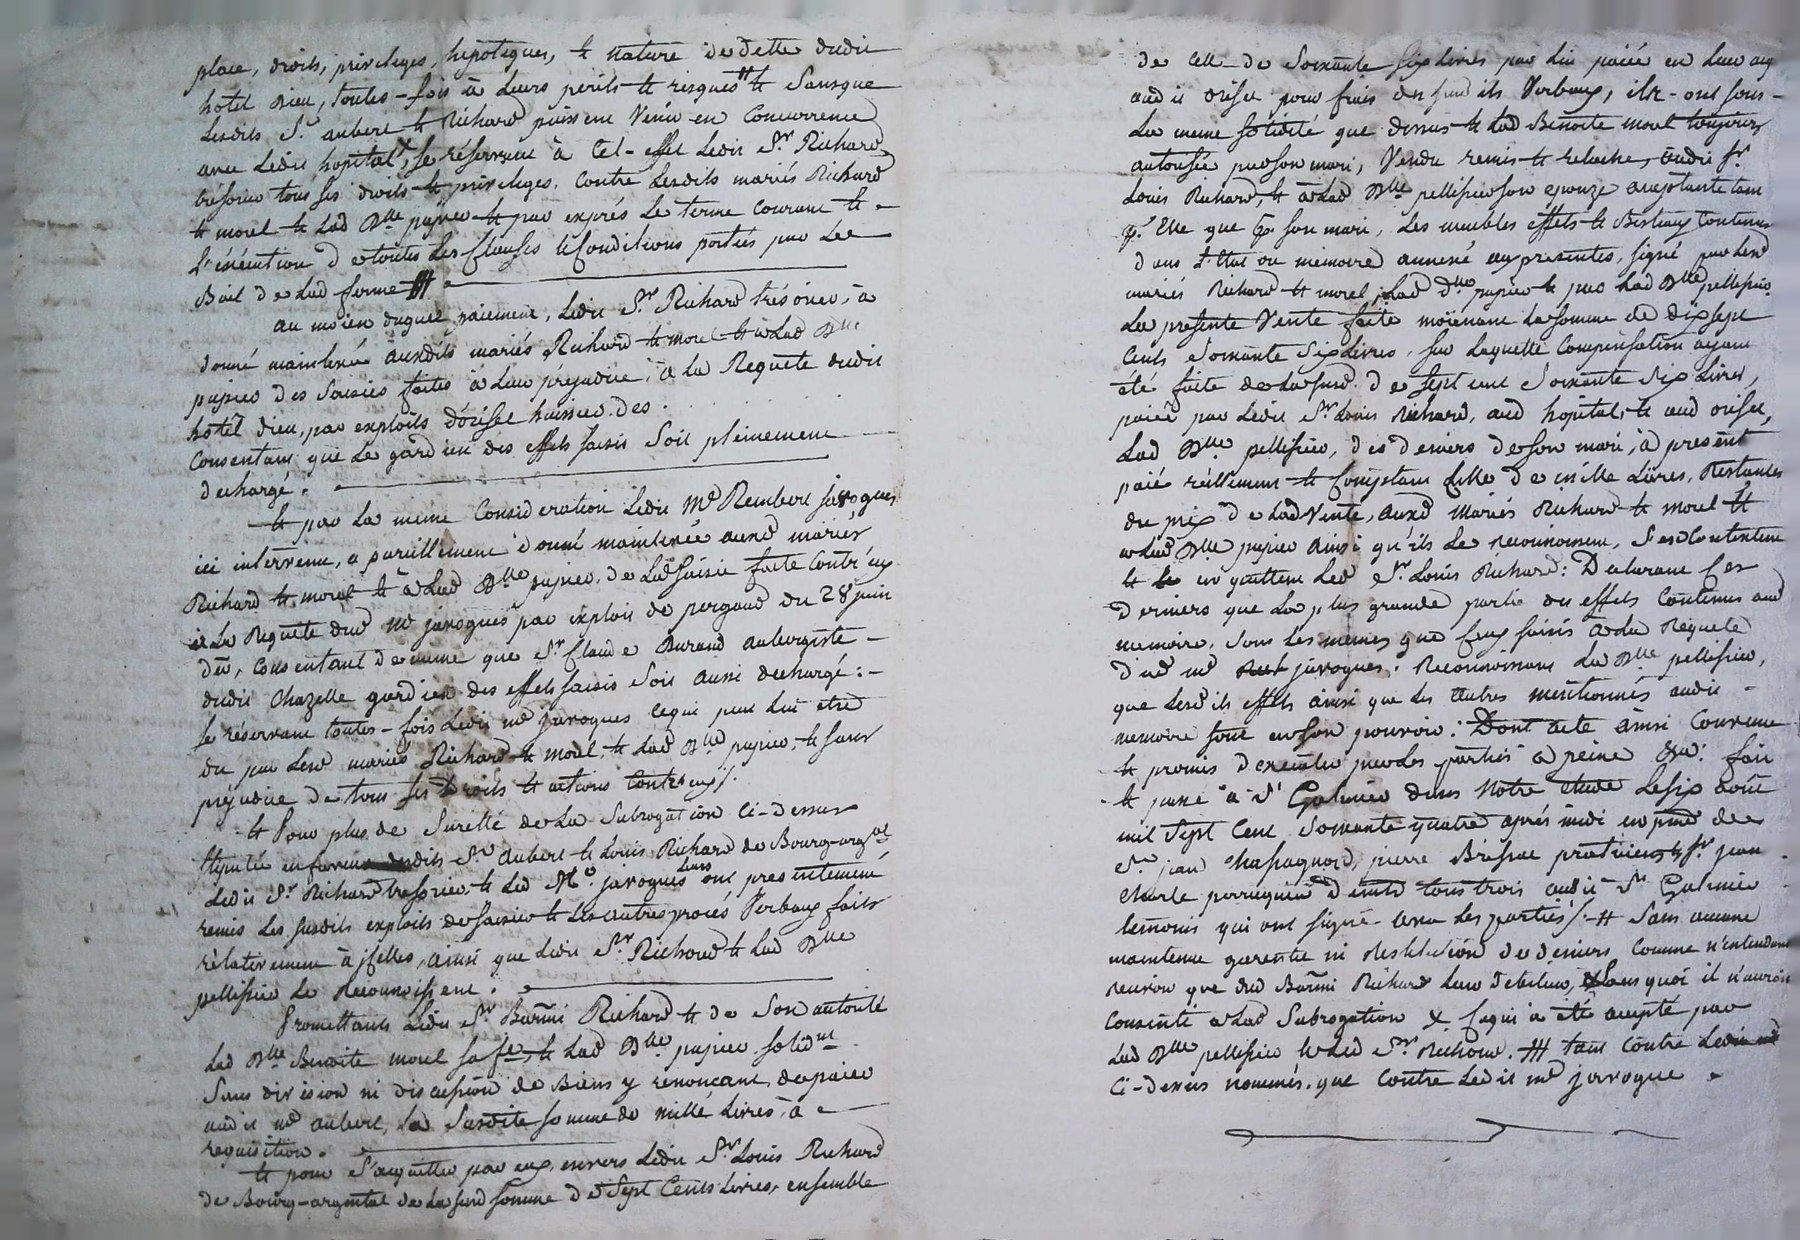 place, droits, privileges, hipoteques, & nature de dette dudit
hotel Dieu, toutes-fois à leurs perils & risques & sans que
lesdits Sr. aubert & Richard puissent Venir en Concurrence
avec Ledit hopital, se réservant à cel-effet Ledit Sr. Richard
trésorier tous ses droits & privileges, Contre Lesdits mariés Richard
& morel & Lad Dlle pupier & par exprés Le terme Courant &
l'exécution de toutes Les Clauses & Conditions portées par Le
Bail de Lad ferme #
au moien duquel paiement, Ledit Sr Richard trésorier, à
donné mainlevée auxdits mariés Richard & morel & à Lad Dlle
pupier des Saisies faites à Leur préjudice, à la Requete dudit
hôtel dieu, par exploits d'orisel huissier des
Consentant que Le gardien des effets saisis Soit pleinement
dechargé.
& par La meme Consideration Ledit Me Rembert javogues
ici intervenu, a pareillement donné mainlevée auxd mariés
Richard & morel & à Lad Dlle pupier, de Lad saisie faite Contr'eux
à La Requete dud Me javogues par exploit de pergaud du 28 juin
der, Consentant de meme que Sr Claude Durand aubergiste
dudit Chazelle gardien des effets saisis Soit aussi dechargé:-
se réservant toutes-fois Ledit Me javogues Ce qui peut Lui etre
du par Lesd mariés Richard & morel & Lad Dlle pupier, & sans
préjudice de tous ses Droits & actions Contr'eux/.
& Pour plus de Sureté de La Subrogation Ci-dessus
stipulée en faveur desdits Sr Aubert & Louis Richard de Bourg-argal
Ledit Sr Richard tresorier & Led Me. javogues Leurs ont presentement
remis Les susdits exploits de saisies & Les autres procés Verbaux faits
rélativement à jcelles, ainsi que Ledit Sr Richard & Lad Dlle
pellissier Le Reconnoissent.
Promettants Ledit Sr Barmi Richard & de Son autorité
Lad Dlle Benoite morel sa fe, & Lad Dlle pupier solidnt
Sans division ni discussion de Biens y renonçant, de paier
audit Me aubert, La Susdite somme de mille Livres, à
requisition.
& pour S'acquitter par eux, envers Ledit Sr Louis Richard
de Bourg-argental de La susd somme de Sept Cents Livres, ensemble
de Celle de Soixante six Livres par Lui paiée en Leur aq
aud orisel pour frais desusdits Verbaux, ils ont sous
La meme solidité que dessus & Lad Benoite morel toujours
autorisée par son mari, Vendu remis & relaché, audit Sr
Louis Richard, & à Lad Dlle pellissier son epouze acceptante tant
pr Elle que pr son mari, Les meubles effets & Bestiaux Contenus
dans L'Etat ou memoire annexé aux presentes, signé par Lesd
mariés Richard & morel, Lad Dlle pupier & par Lad Dlle pellissier
La presente Vente faite moiénant La somme de dix sept
Cents Soixante Six Livres, sur Laquelle Compensation ayant
été faite de La susd. de sept cent Soixante six Livres,
paiée par Ledit Sr Louis Richard, aud hopital, & aud orisel,
Lad Dlle pellissier, des deniers de son mari, à présent
paié réellement & Comptant Celle de mille Livres, Restantes
du prix de Lad Vente, auxd mariés Richard & morel &
à Lad Dlle pupier ainsi qu'ils Le reconnoissent, S'en Contentent
& en quittent Led Sr Louis Richard: Declarant Ces
derniers que La plus grande partie des effets Contenus aud
memoire, sont Les memes que Ceux saisis à La Requete
dud Me javogues, Reconnoissant La Dlle pellissier,
que Lesdits effets ainsi que Les Autres mentionnés audit
memoire sont en son pouvoir: Dont acte ainsi Convenu
& promis d'executer par Les parties à peine &a: fait
& passé à St Galmier dans Notre etude Le six août
mil Sept Cent Soixante-quatre aprés midi en pnce de
Sr jean Chassagnard, pierre Bressac praticiens & Sr jean
Charle perruquier demt tous trois audit St Galmier
temoins qui ont signé avec Les parties/.-# Sans aucune
maintenue garentie ni Restitution de deniers Comme n'entendant
recevoir que dud Barmi Richard Leur debiteur, Sans quoi il n'auroit
Consenti à Lad Subrogation & Ce qui a été accepté par
Lad Dlle pellissier & Led Sr Richard. ## tant Contre
Ci-dessus nommés, que Contre Ledit Me javogue